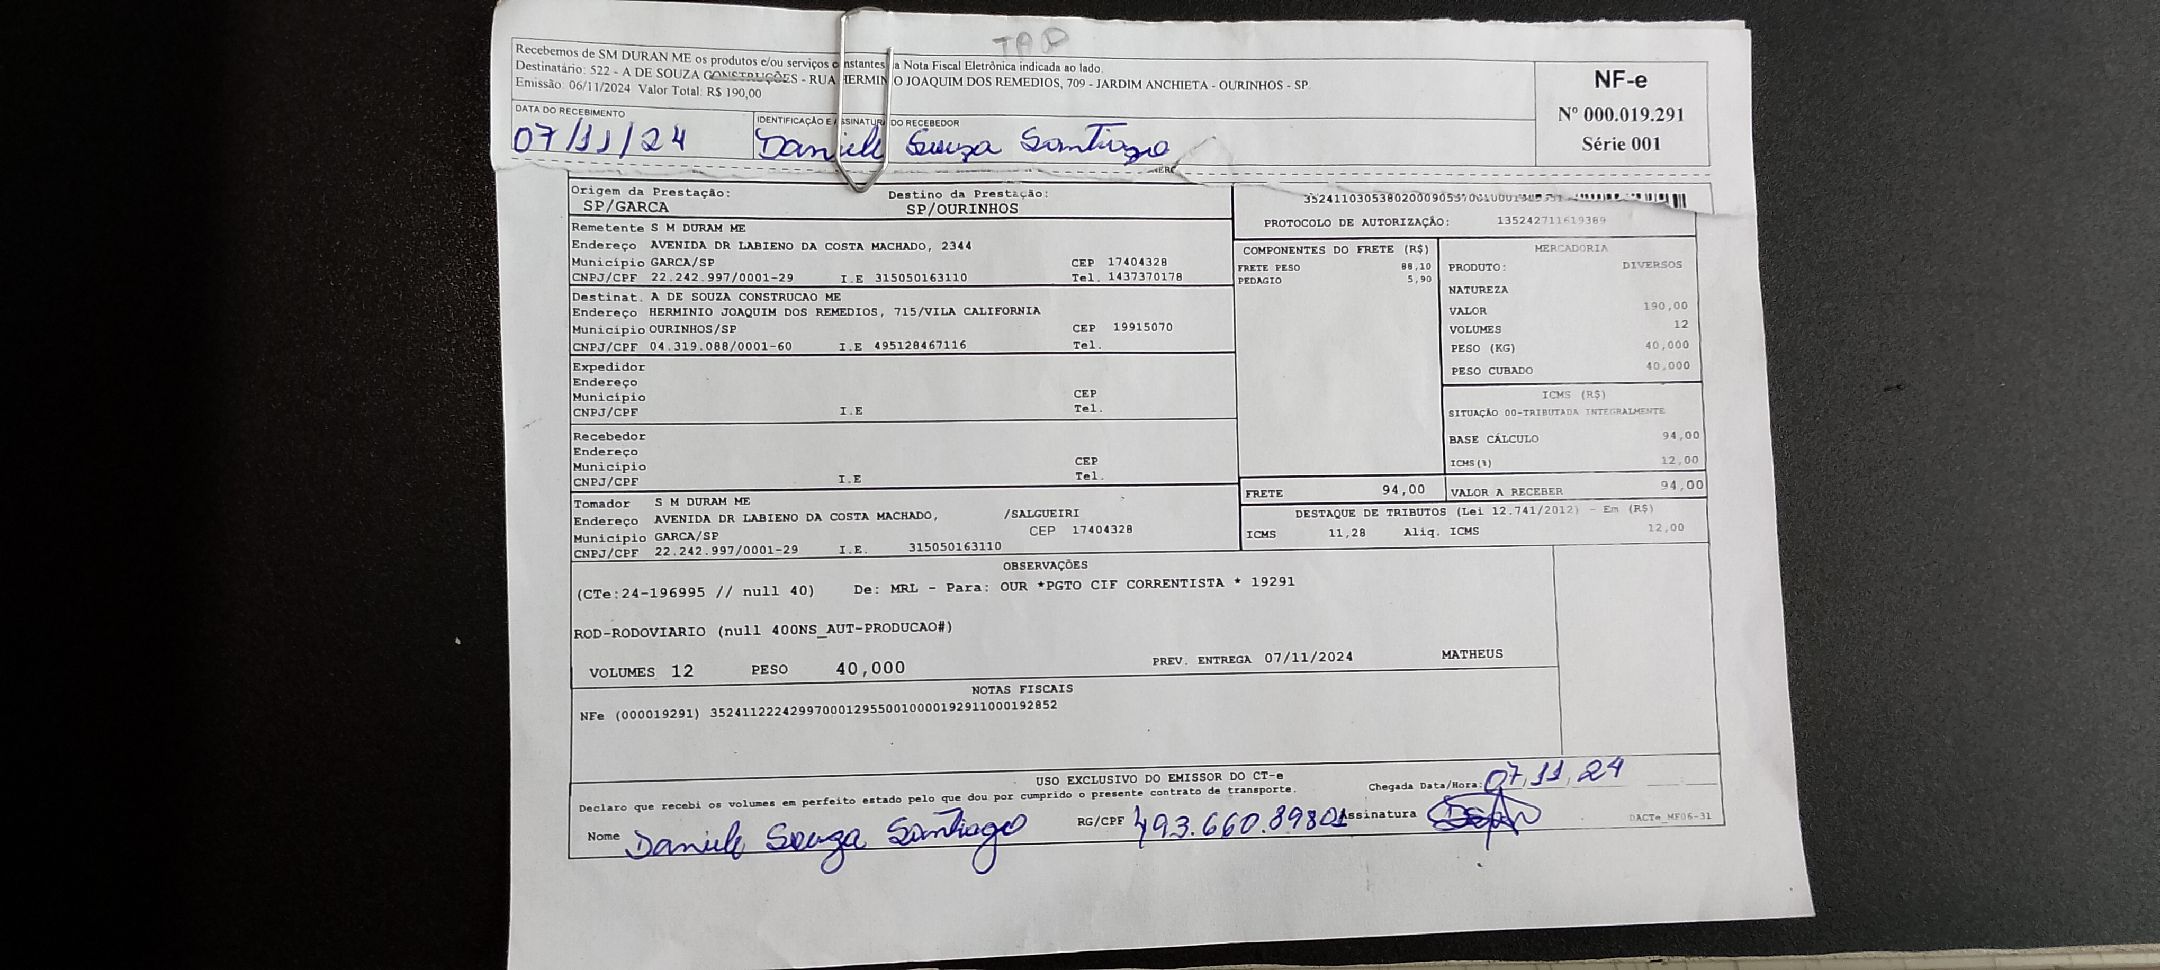 TAP
Recebemos de SM DURAN ME os produtos e/ou serviços constantes a Nota Fiscal Eletrônica indicada ao lado.
Destinatário: 522 - A DE SOUZA CONSTRUÇÕES - RUA HERMINIO JOAQUIM DOS REMEDIOS, 709 - JARDIM ANCHIETA - OURINHOS - SP
Emissão: 06/11/2024 Valor Total: R$ 190,00
NF-e
Nº 000.019.291
Série 001
DATA DO RECEBIMENTO
07/11/24
IDENTIFICAÇÃO E ASSINATURA DO RECEBEDOR
Daniele Souza Santiago
Origem da Prestação: Destino da Prestação:
SP/GARCA SP/OURINHOS
PROTOCOLO DE AUTORIZAÇÃO: 135242711619389
Remetente S M DURAM ME
Endereço AVENIDA DR LABIENO DA COSTA MACHADO, 2344
Município GARCA/SP CEP 17404328
CNPJ/CPF 22.242.997/0001-29 I.E 315050163110 Tel. 1437370178
Destinat. A DE SOUZA CONSTRUCAO ME
Endereço HERMINIO JOAQUIM DOS REMEDIOS, 715/VILA CALIFORNIA
Município OURINHOS/SP CEP 19915070
CNPJ/CPF 04.319.088/0001-60 I.E 495128467116 Tel.
Expedidor
Endereço
Município CEP
CNPJ/CPF I.E Tel.
Recebedor
Endereço
Município CEP
CNPJ/CPF I.E Tel.
Tomador S M DURAM ME
Endereço AVENIDA DR LABIENO DA COSTA MACHADO, /SALGUEIRI
Município GARCA/SP CEP 17404328
CNPJ/CPF 22.242.997/0001-29 I.E. 315050163110
COMPONENTES DO FRETE (R$)
FRETE PESO 88,10
PEDAGIO 5,90
MERCADORIA
PRODUTO: DIVERSOS
NATUREZA
VALOR 190,00
VOLUMES 12
PESO (KG) 40,000
PESO CUBADO 40,000
ICMS (R$)
SITUAÇÃO 00-TRIBUTADA INTEGRALMENTE
BASE CÁLCULO 94,00
ICMS(%) 12,00
FRETE 94,00 VALOR A RECEBER 94,00
DESTAQUE DE TRIBUTOS (Lei 12.741/2012) - Em (R$)
ICMS 11,28 Aliq. ICMS 12,00
OBSERVAÇÕES
(CTe:24-196995 // null 40) De: MRL - Para: OUR *PGTO CIF CORRENTISTA * 19291
ROD-RODOVIARIO (null 400NS_AUT-PRODUCAO#)
VOLUMES 12 PESO 40,000 PREV. ENTREGA 07/11/2024 MATHEUS
NOTAS FISCAIS
NFe (000019291) 35241122242997000129550010000192911000192852
USO EXCLUSIVO DO EMISSOR DO CT-e
Declaro que recebi os volumes em perfeito estado pelo que dou por cumprido o presente contrato de transporte.
Chegada Data/Hora: 07/11/24
Nome Daniele Souza Santiago RG/CPF 493.660.89801 Assinatura
DACTe_MF06-31